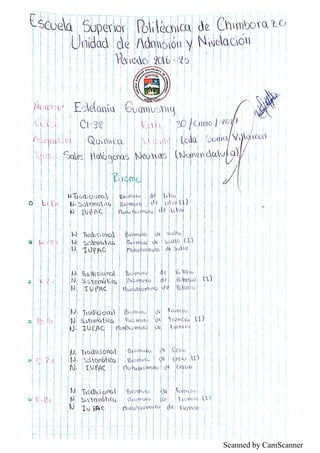 Escuela Superior Politécnica de Chimborazo
Unidad de Admisión y Nivelación
Periodo 2016-2S
Nombre: Estefanía Guamushig
CI-32 30/Enero/2017
Asignatura Química Leda Sonia Villamar
Tema: Sales Halógenas Neutras (Nomenclatura)
Bromo
N Tradicional Bromuro de Litio
Li Br N. Sistemática Bromuro de Litio (I)
N IUPAC Monobromuro de Litio
N Tradicional Bromuro de Sodio
N Sistemática Bromuro de Sodio (I)
N. IUPAC Monobromuro de Sodio
N Tradicional Bromuro de Potasio
N Sistemática Bromuro de Potasio (I)
N. IUPAC Monobromuro de Potasio
N. Tradicional Bromuro de
N. Sistemática Bromuro de (I)
N. IUPAC Monobromuro de
N. Tradicional Bromuro de Cesio
N. Sistemática Bromuro de Cesio (I)
N. IUPAC Monobromuro de Cesio
N Tradicional Bromuro de Francio
N Sistemática Bromuro de Francio (I)
N IUPAC Monobromuro de Francio
Scanned by CamScanner